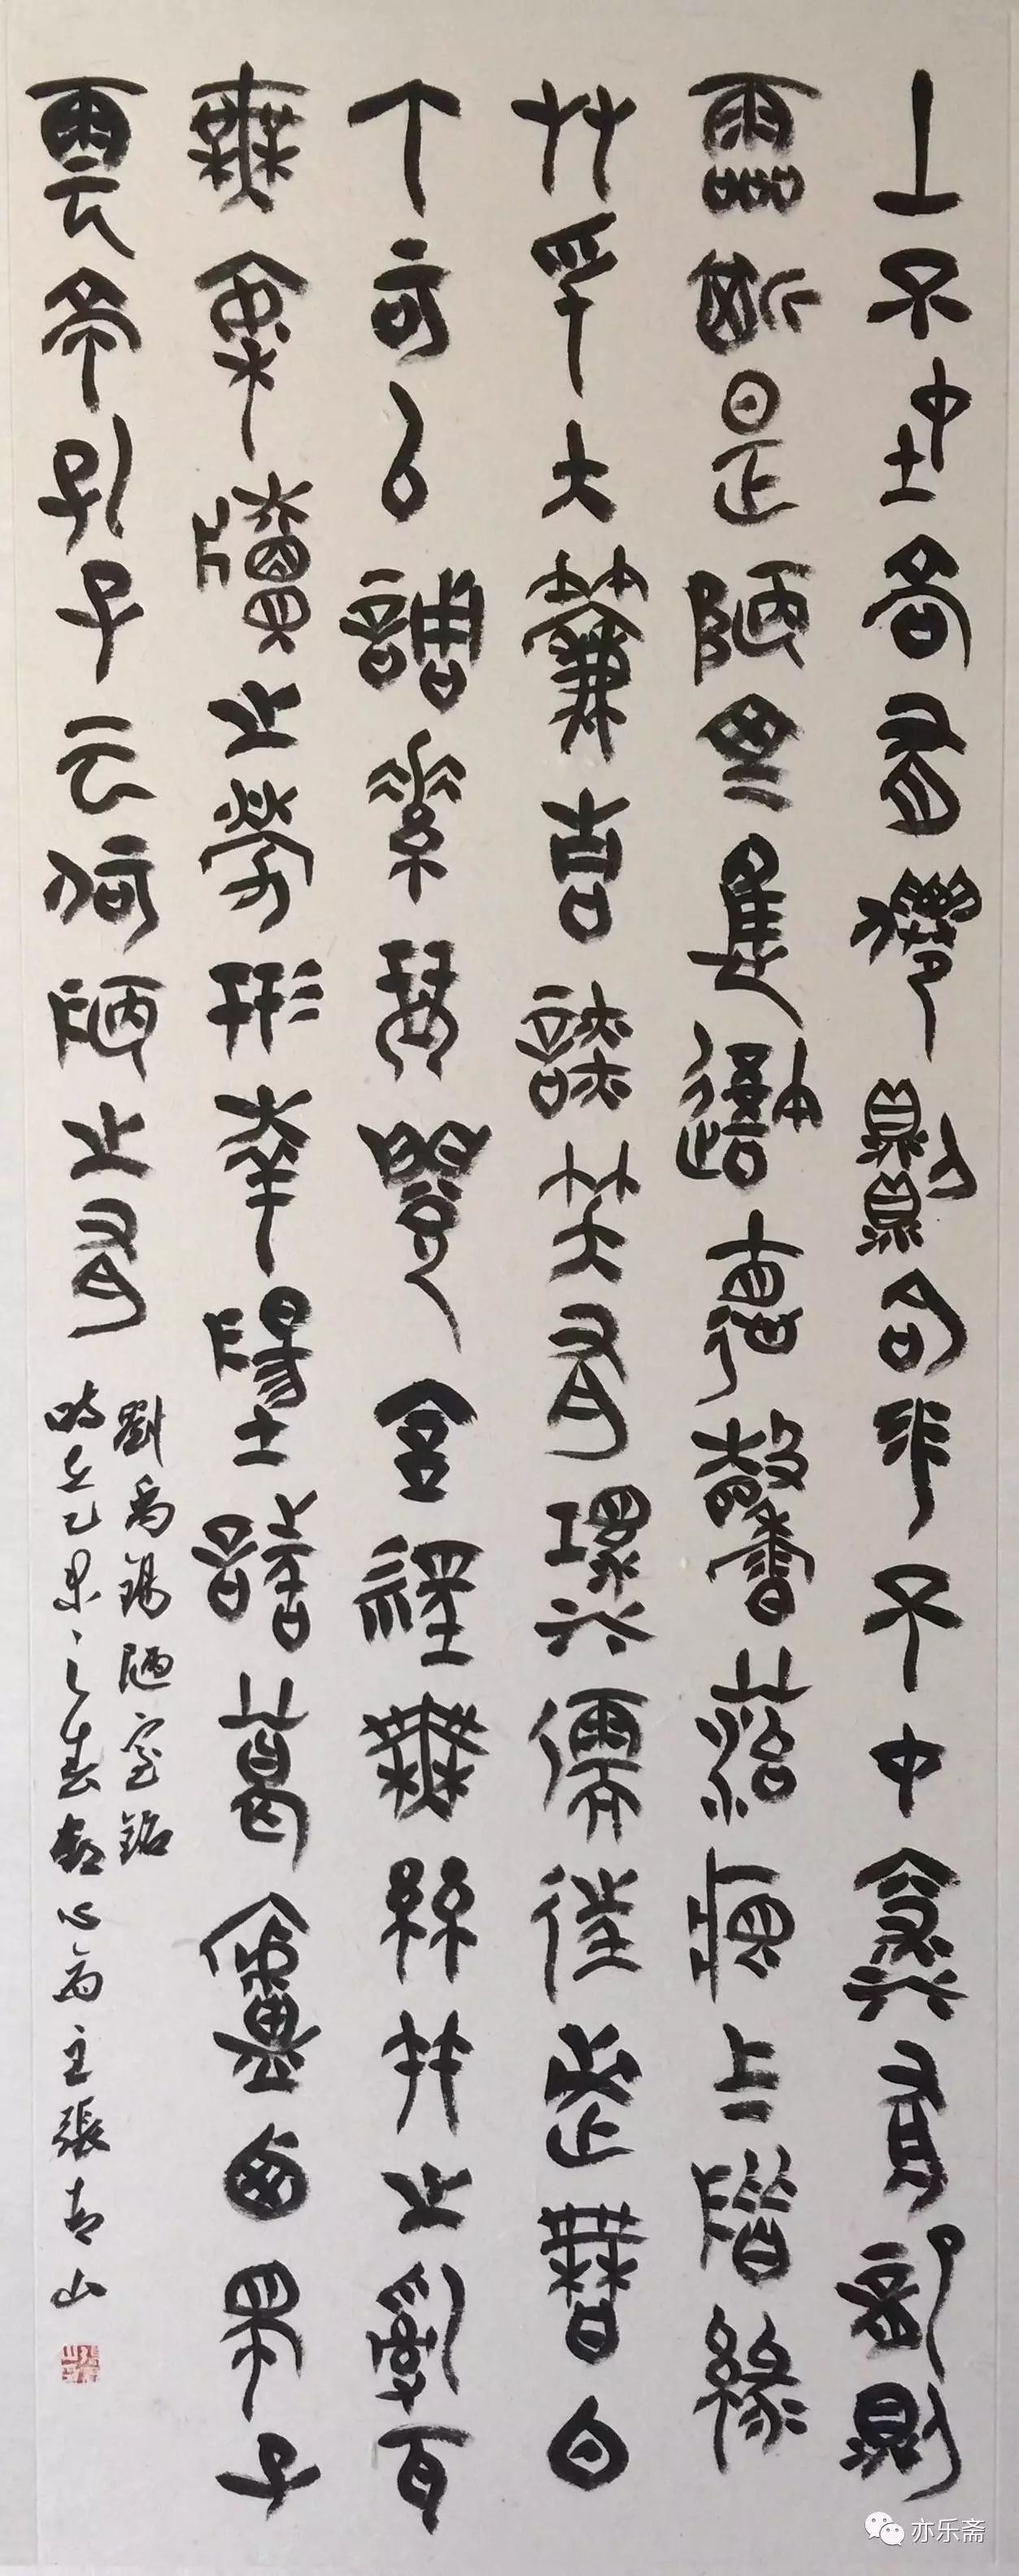 山不在高有僊則名水不在深有龍則
靈斯是陋室惟吾德馨苔痕上階緑
艸色入簾青談笑有鴻儒往來無白
丁可以調素琴閱金經無絲竹之亂耳
無案牘之勞形南陽諸葛廬西蜀子
雲亭孔子云何陋之有
劉禹錫陋室銘
時在乙未之春心齋主張青山
亦乐斋